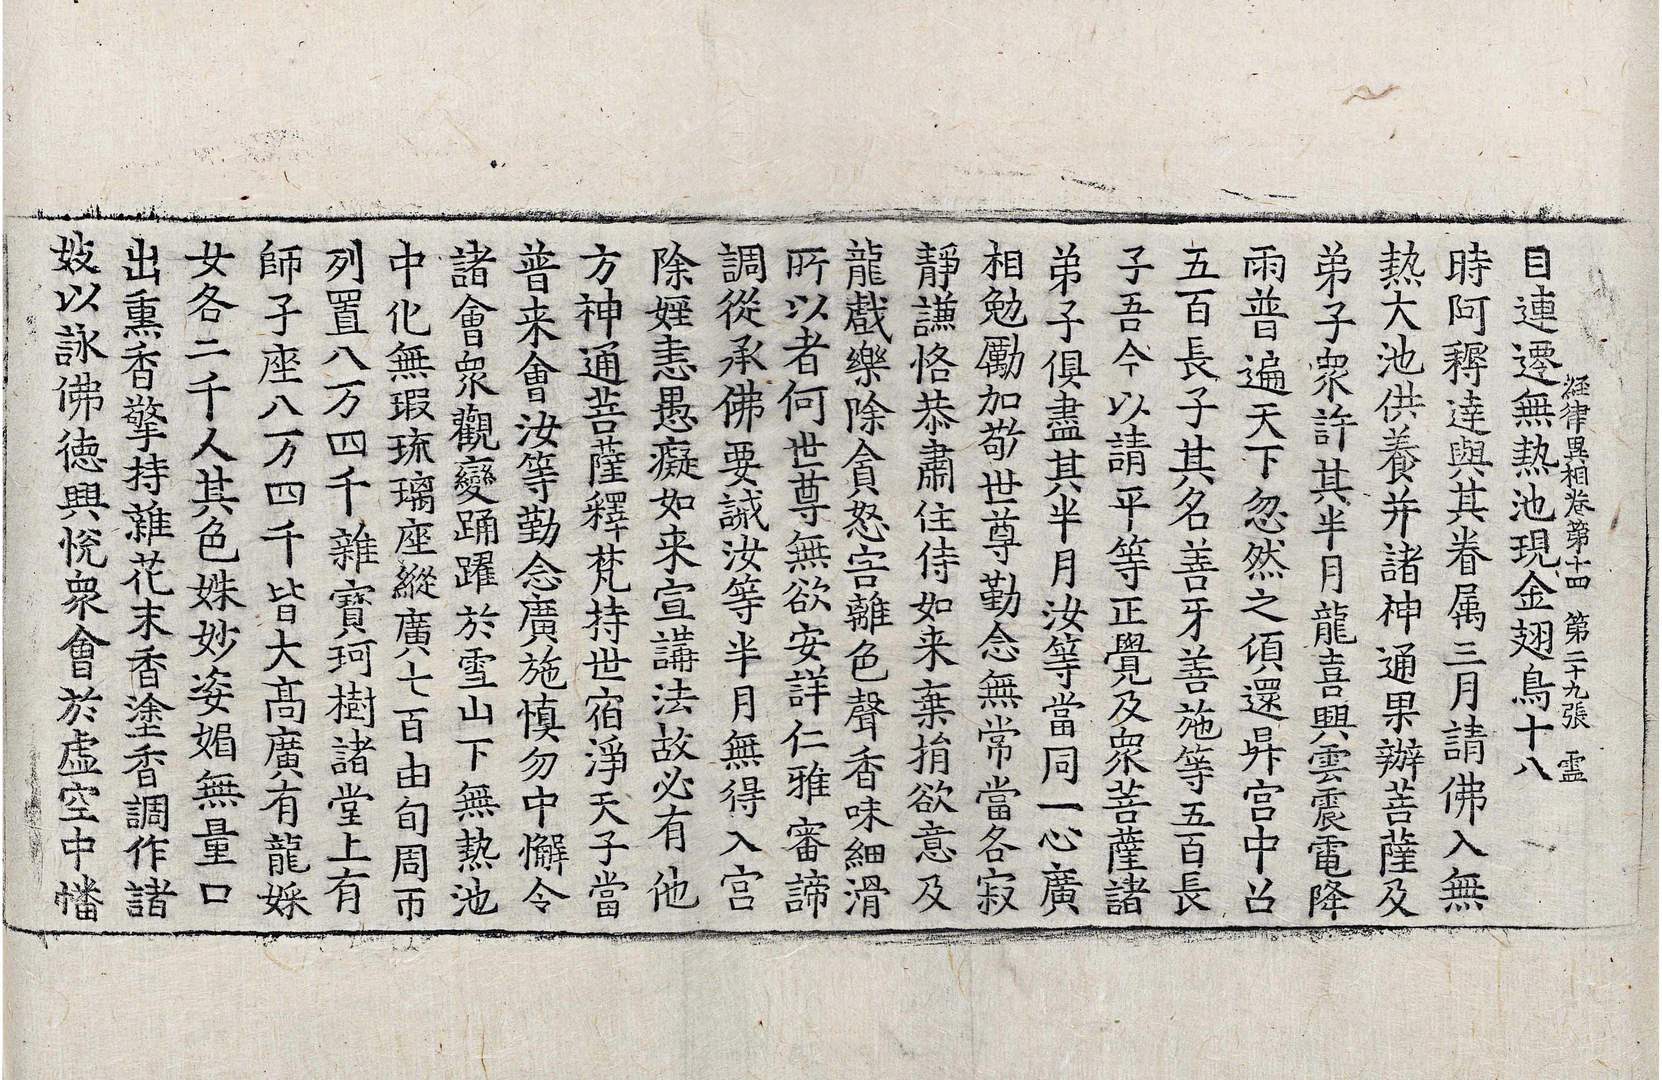 經律異相卷第十四 第二十九張 靈
目連遷無熱池現金翅鳥十八
時阿耨達與其眷属三月請佛入無
熱大池供養并諸神通果辦菩薩及
弟子衆許其半月龍喜興雲震電降
雨普遍天下忽然之頃還昇宫中召
五百長子其名善牙善施等五百長
子吾今以請平等正覺及衆菩薩諸
弟子俱盡其半月汝等當同一心廣
相勉勵加敬世尊勤念無常當各寂
静謙恪恭肅住侍如来棄捐欲意及
龍戲樂除貪怒害離色聲香味細滑
所以者何世尊無欲安詳仁雅審諦
調從承佛要誡汝等半月無得入宫
除婬恚愚癡如来宣講法故必有他
方神通菩薩釋梵持世宿淨天子當
普来會汝等勤念廣施慎勿中懈令
諸會衆觀變踊躍於雪山下無熱池
中化無瑕琉璃座縱廣七百由旬周帀
列置八万四千雜寶珂樹諸堂上有
師子座八万四千皆大高廣有龍婇
女各二千人其色姝妙姿媚無量口
出熏香擎持雜花末香塗香調作諸
妓以詠佛德興悅衆會於虛空中幡